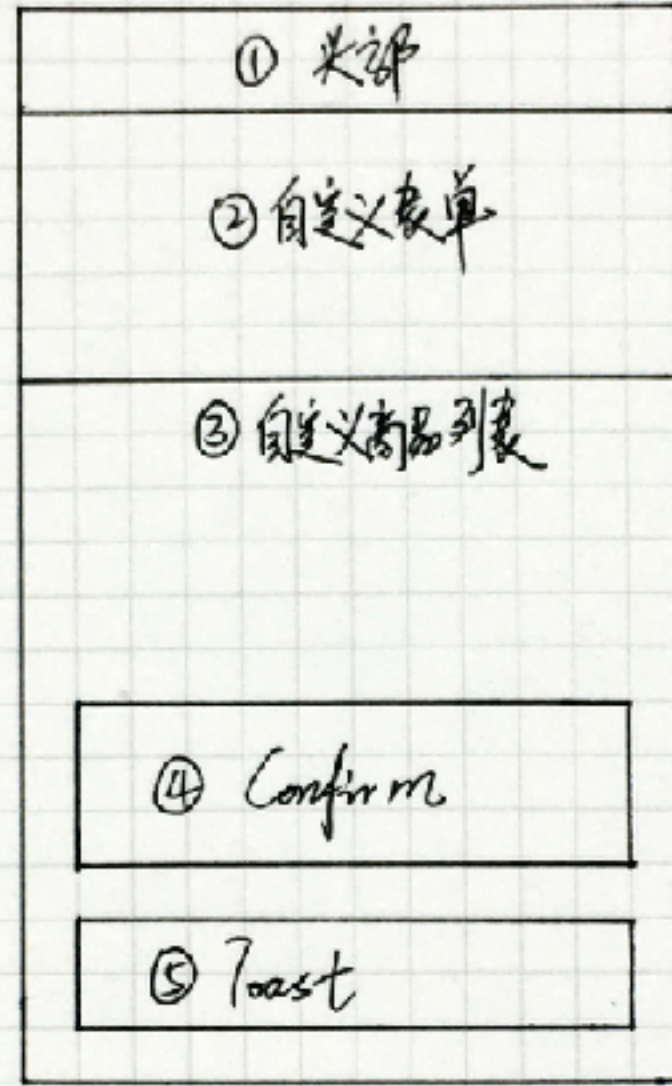 ① 头部
② 自定义表单
③ 自定义商品列表
④ Confirm
⑤ Toast